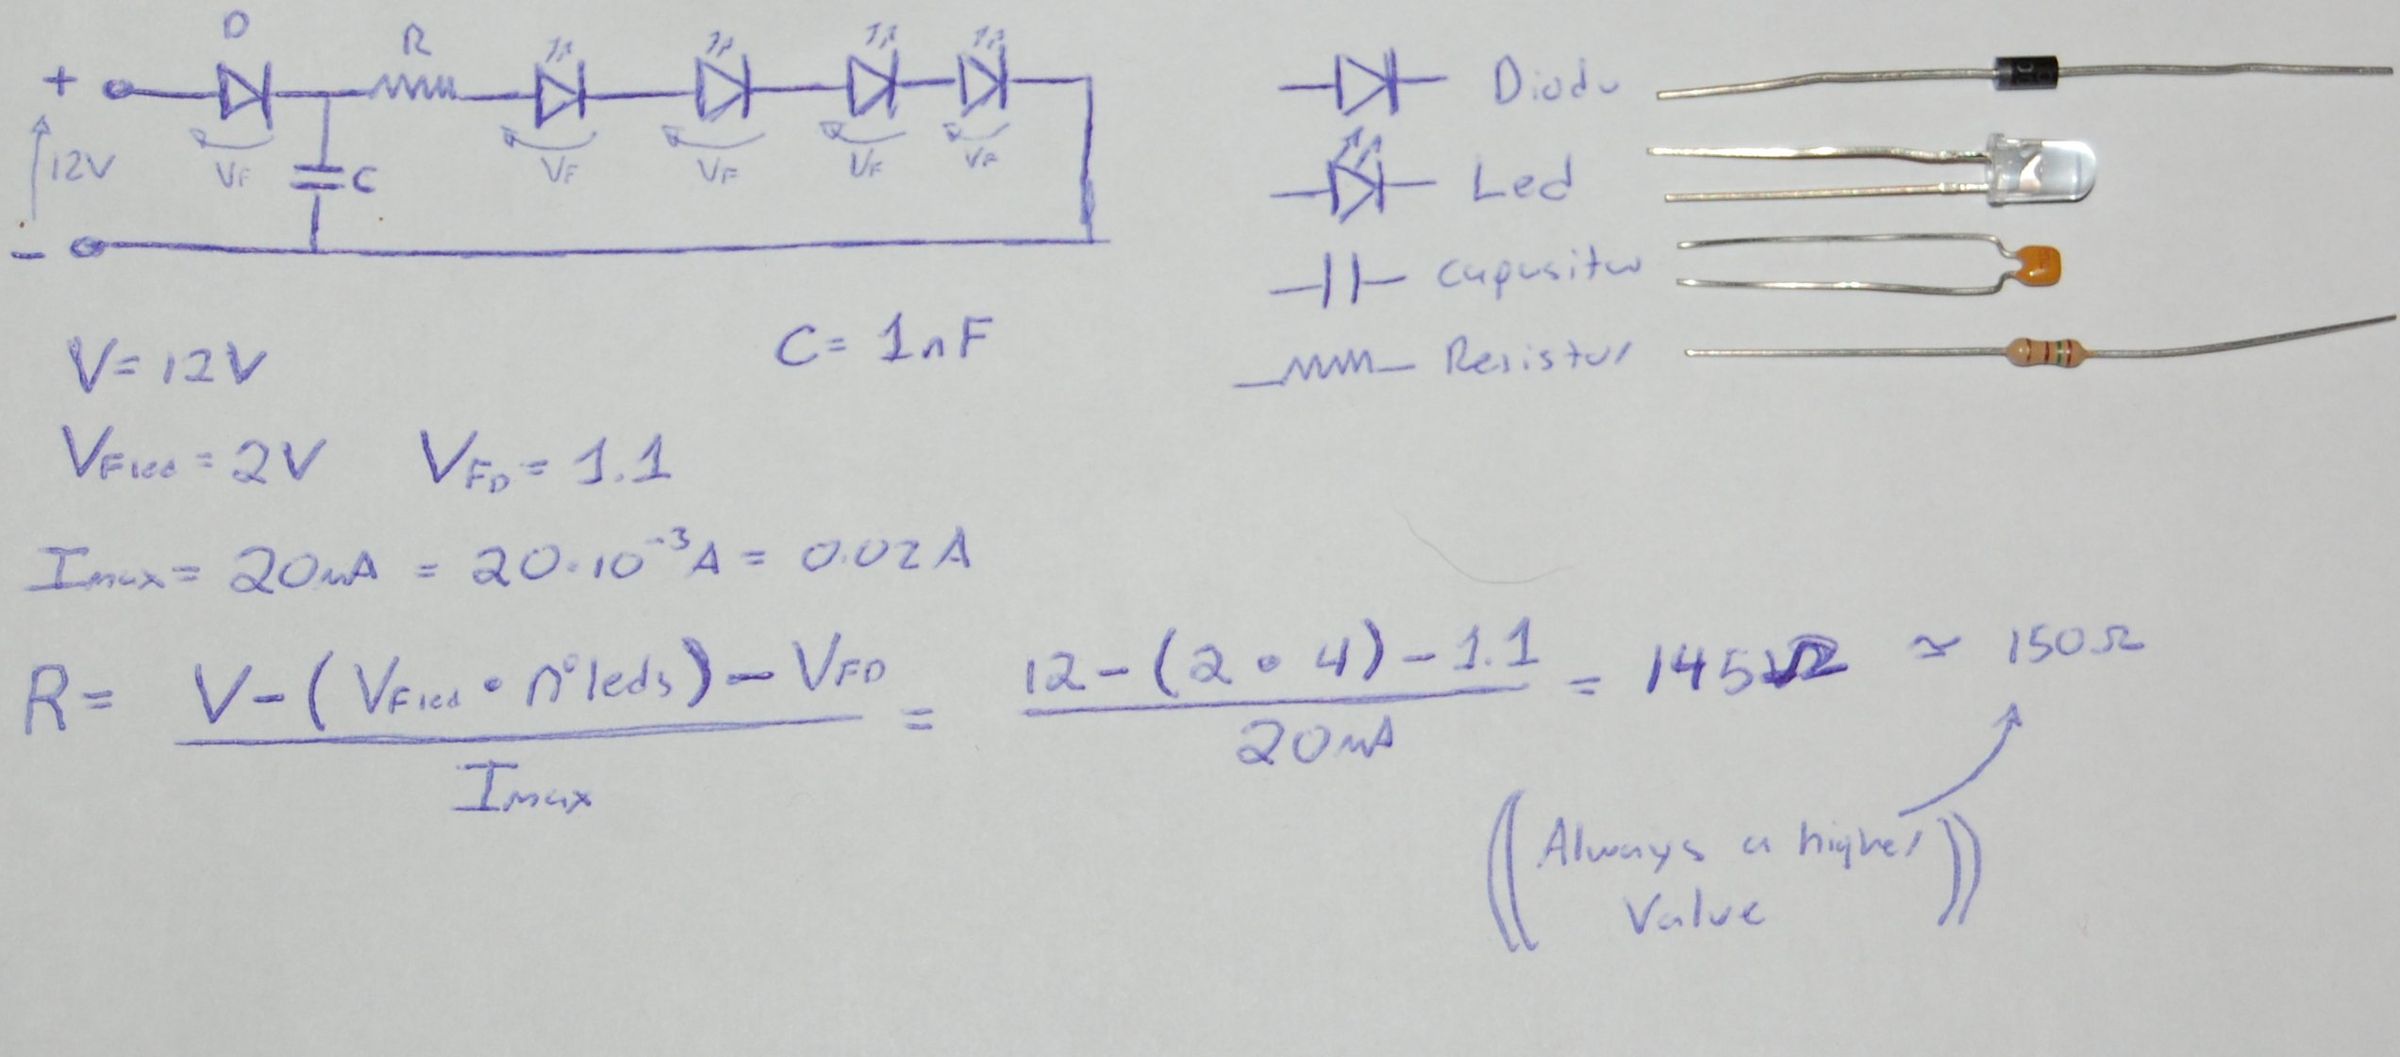 D
R
+
12V
VF
C
VF
VF
VF
VF
-
Diode
Led
Capasitor
Resistor
V= 12V
C= 1nF
VFled = 2V VFD = 1.1
Imax = 20mA = 20·10⁻³A = 0.02A
R= V-(VFled · nºleds) - VFD / Imax = 12-(2·4)-1.1 / 20mA = 145Ω ≃ 150Ω
((Always a higher
Value))